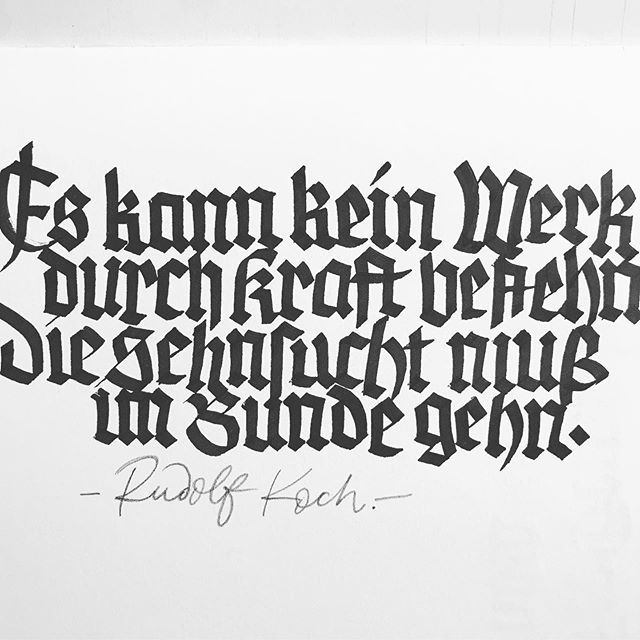 Es kann kein Werk
durch Kraft bestehn
Die Sehnsucht muß
im Bunde gehn.
- Rudolf Koch. -